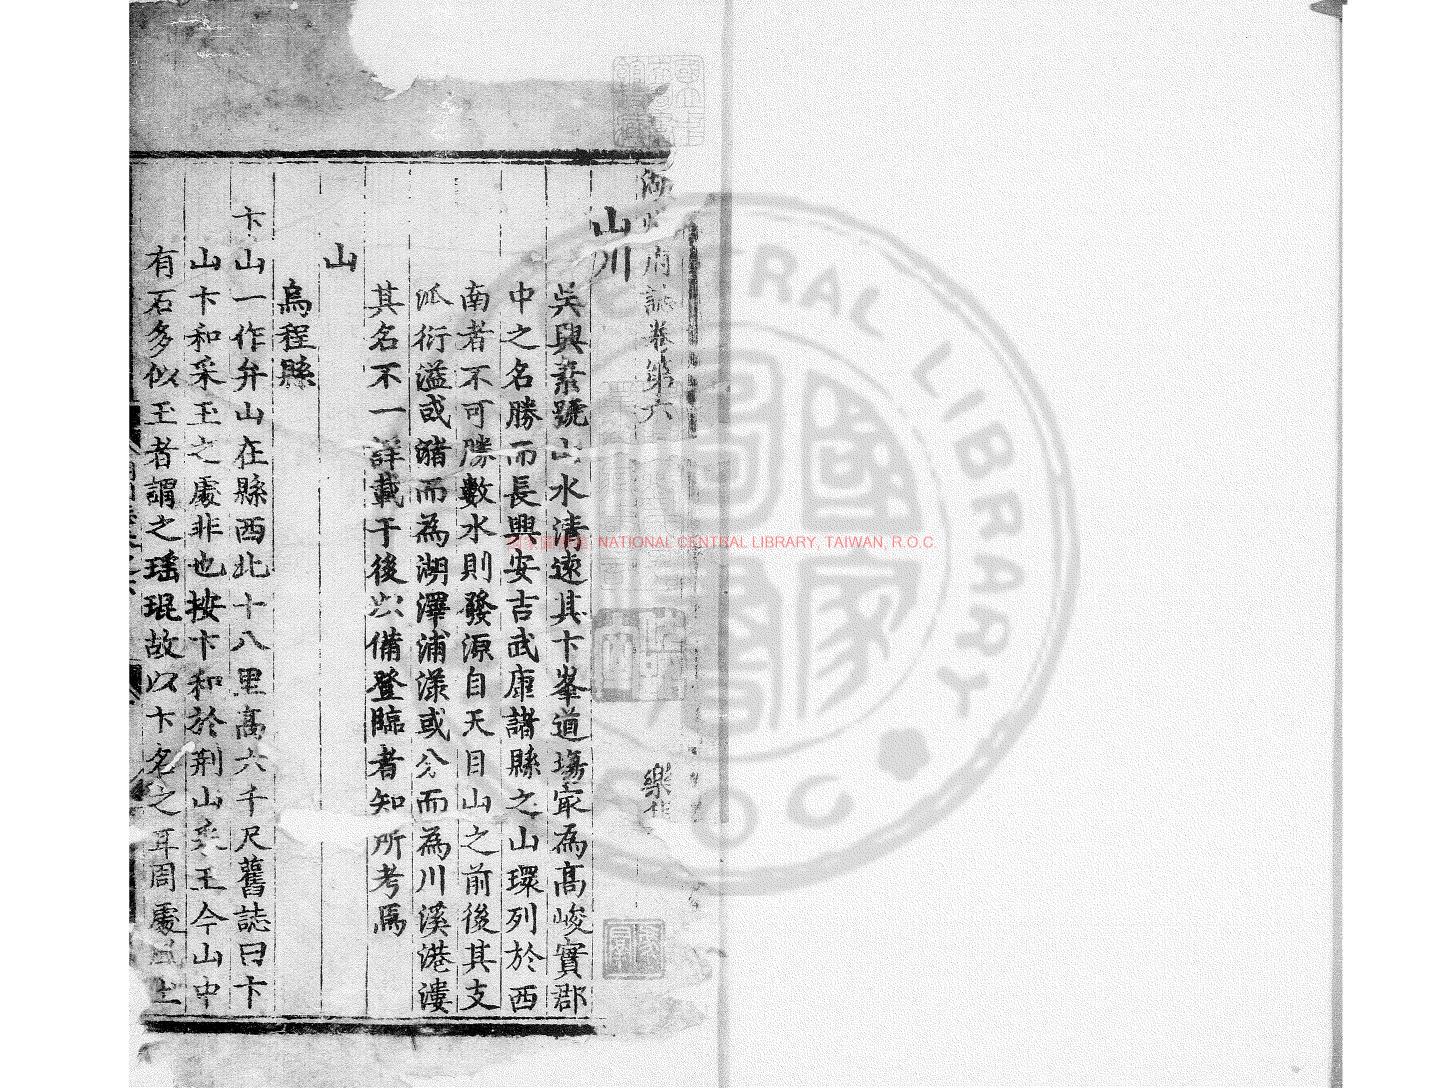 湖州府誌卷第六
樂
山川
吳興素號山水清遠其卞峯道塲冣為高峻實郡
中之名勝而長興安吉武康諸縣之山環列於西
南者不可勝數水則發源自天目山之前後其支
派衍溢或豬而為湖澤浦漾或分而為川溪港漊
其名不一詳載于後以備登臨者知所考焉
山
烏程縣
卞山一作弁山在縣西北十八里高六千尺舊誌曰卞
山卞和采玉之處非也按卞和於荆山采玉今山中
有石多似玉者謂之瑶琨故以卞名之耳周處風土
國家圖書館 NATIONAL CENTRAL LIBRARY, TAIWAN, R.O.C.
CENTRAL LIBRARY
R.O.C.